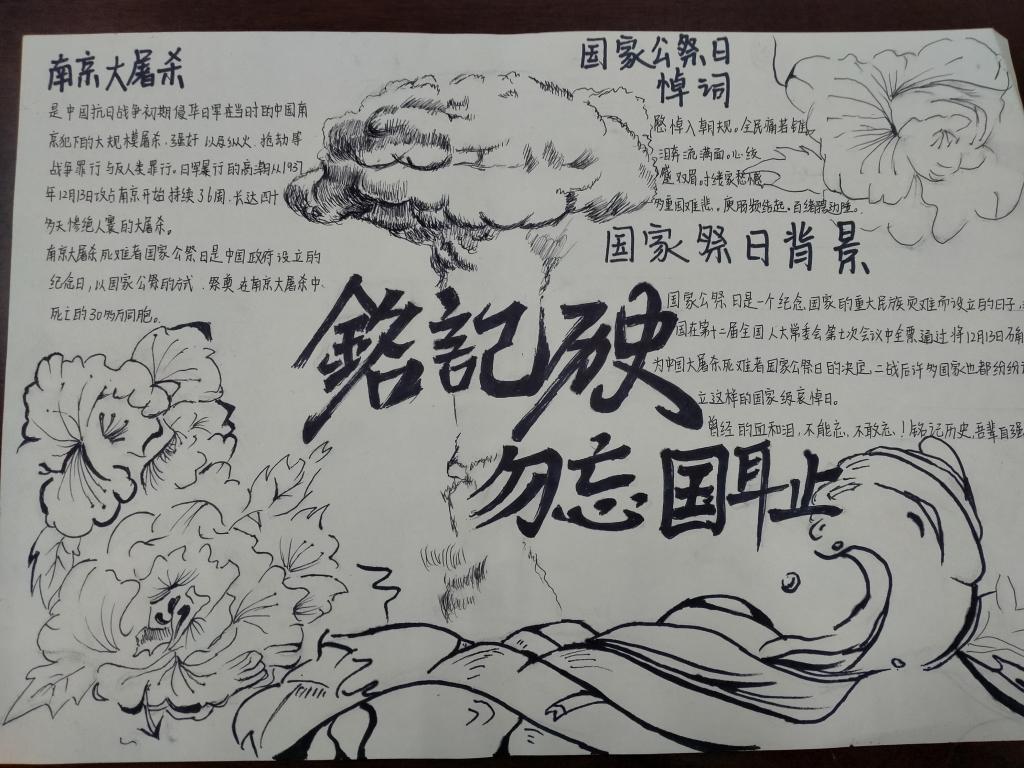 南京大屠杀
是中国抗日战争初期侵华日军在当时的中国南
京犯下的大规模屠杀、强奸以及纵火、抢劫等
战争罪行与反人类罪行。日军暴行的高潮从1937
年12月13日攻占南京开始持续36周,长达四十
多天惨绝人寰的大屠杀。
南京大屠杀死难者国家公祭日是中国政府设立的
纪念日,以国家公祭的方式,祭奠在南京大屠杀中
死亡的30多万同胞。
国家公祭日
悼词
悼入朝规。全民痛若
泪奔流满面。心
双眉。
重国难悲。
国家祭日背景
国家公祭日是一个纪念国家的重大民族灾难而设立的日子,
国在第十二届全国人大常委会第七次会议中全票通过将12月13日确
为中国大屠杀死难者国家公祭日的决定,二战后许多国家也都纷纷
立这样的国家级哀悼日。
曾经的血和泪,不能忘,不敢忘!铭记历史,吾辈自强
銘記历史
勿忘国耻